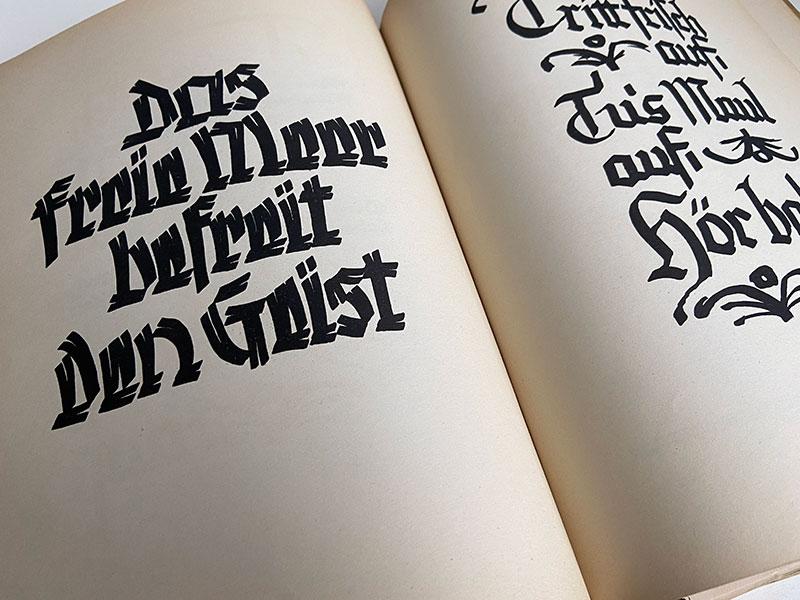 Das
freie Meer
befreit
den Geist
Tritt frisch
auf·
Tu's Maul
auf·
Hör